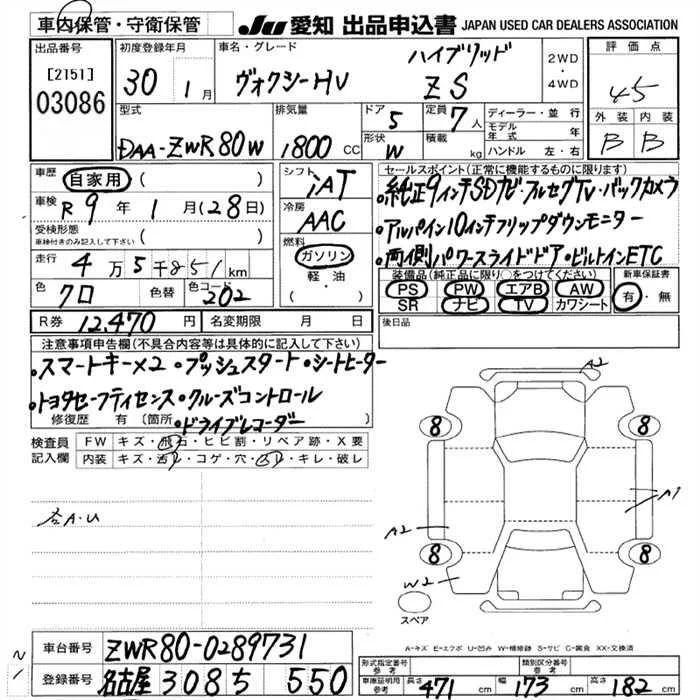 車内保管・守衛保管 JU 愛知 出品申込書 JAPAN USED CAR DEALERS ASSOCIATION
出品番号 [2151] 03086
初度登録年月 30 1月
車名・グレード ヴォクシーHV ハイブリッド ZS 2WD・4WD
評価点 45
外装 内装
B B
型式 DAA-ZWR80W
排気量 1800 CC
ドア 5
形状 W
定員 7人
積載 kg
ディーラー・並行
モデル年式 年
ハンドル 左・右
車歴 自家用 ( )
車検 R9年1月(28日)
受検形態 ( )
車検付きのみ記入して下さい
走行 4万5千851km
色 クロ 色替 色コード 202
シフト iAT
冷房 AAC
燃料 ガソリン
軽・油
( )
セールスポイント(正常に機能するものに限り)
・純正9インチSDナビ・フルセグTV・バックカメラ
・アルパイン10インチフリップダウンモニター
・両側パワースライドドア・ビルトインETC
装備品(純正品に限り○をつけてください)
PS PW エアB AW
SR ナビ TV カワシート
新車保証書 有・無
R券 12,470円 名変期限 月 日
後日品
注意事項申告欄(不具合内容等は具体的に記入して下さい)
・スマートキー×2・プッシュスタート・シートヒーター
・トヨタセーフティセンス・クルーズコントロール
・ドライブレコーダー
修復歴 有 [箇所
検査員記入欄
FW キズ・飛石・ヒビ割・リペア跡・X要
内装 キズ・汚レ・コゲ・穴・スレ・キレ・破レ
各A・U
A2
8 8
A1
A2
8 8
W2
スペア
A-キズ E-エクボ U-凹み W-補修跡 S-サビ C-腐食 XX-交換済
車台番号 ZWR80-0289731
登録番号 名古屋 308 ち 550
形式指定番号 参考
類別区分番号 参考
車庫証明用 参考 長さ 471 cm 幅 173 cm 高さ 182 cm